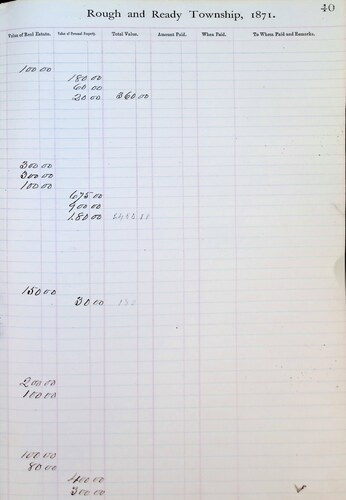 40
Rough and Ready Township, 1871.
Value of Real Estate. Value of Personal Property. Total Value. Amount Paid. When Paid. To Whom Paid and Remarks.
100.00
180.00
60.00
20.00 360.00
300.00
300.00
100.00
675.00
900.00
180.00
150.00
30.00
200.00
100.00
100.00
80.00
400.00
300.00